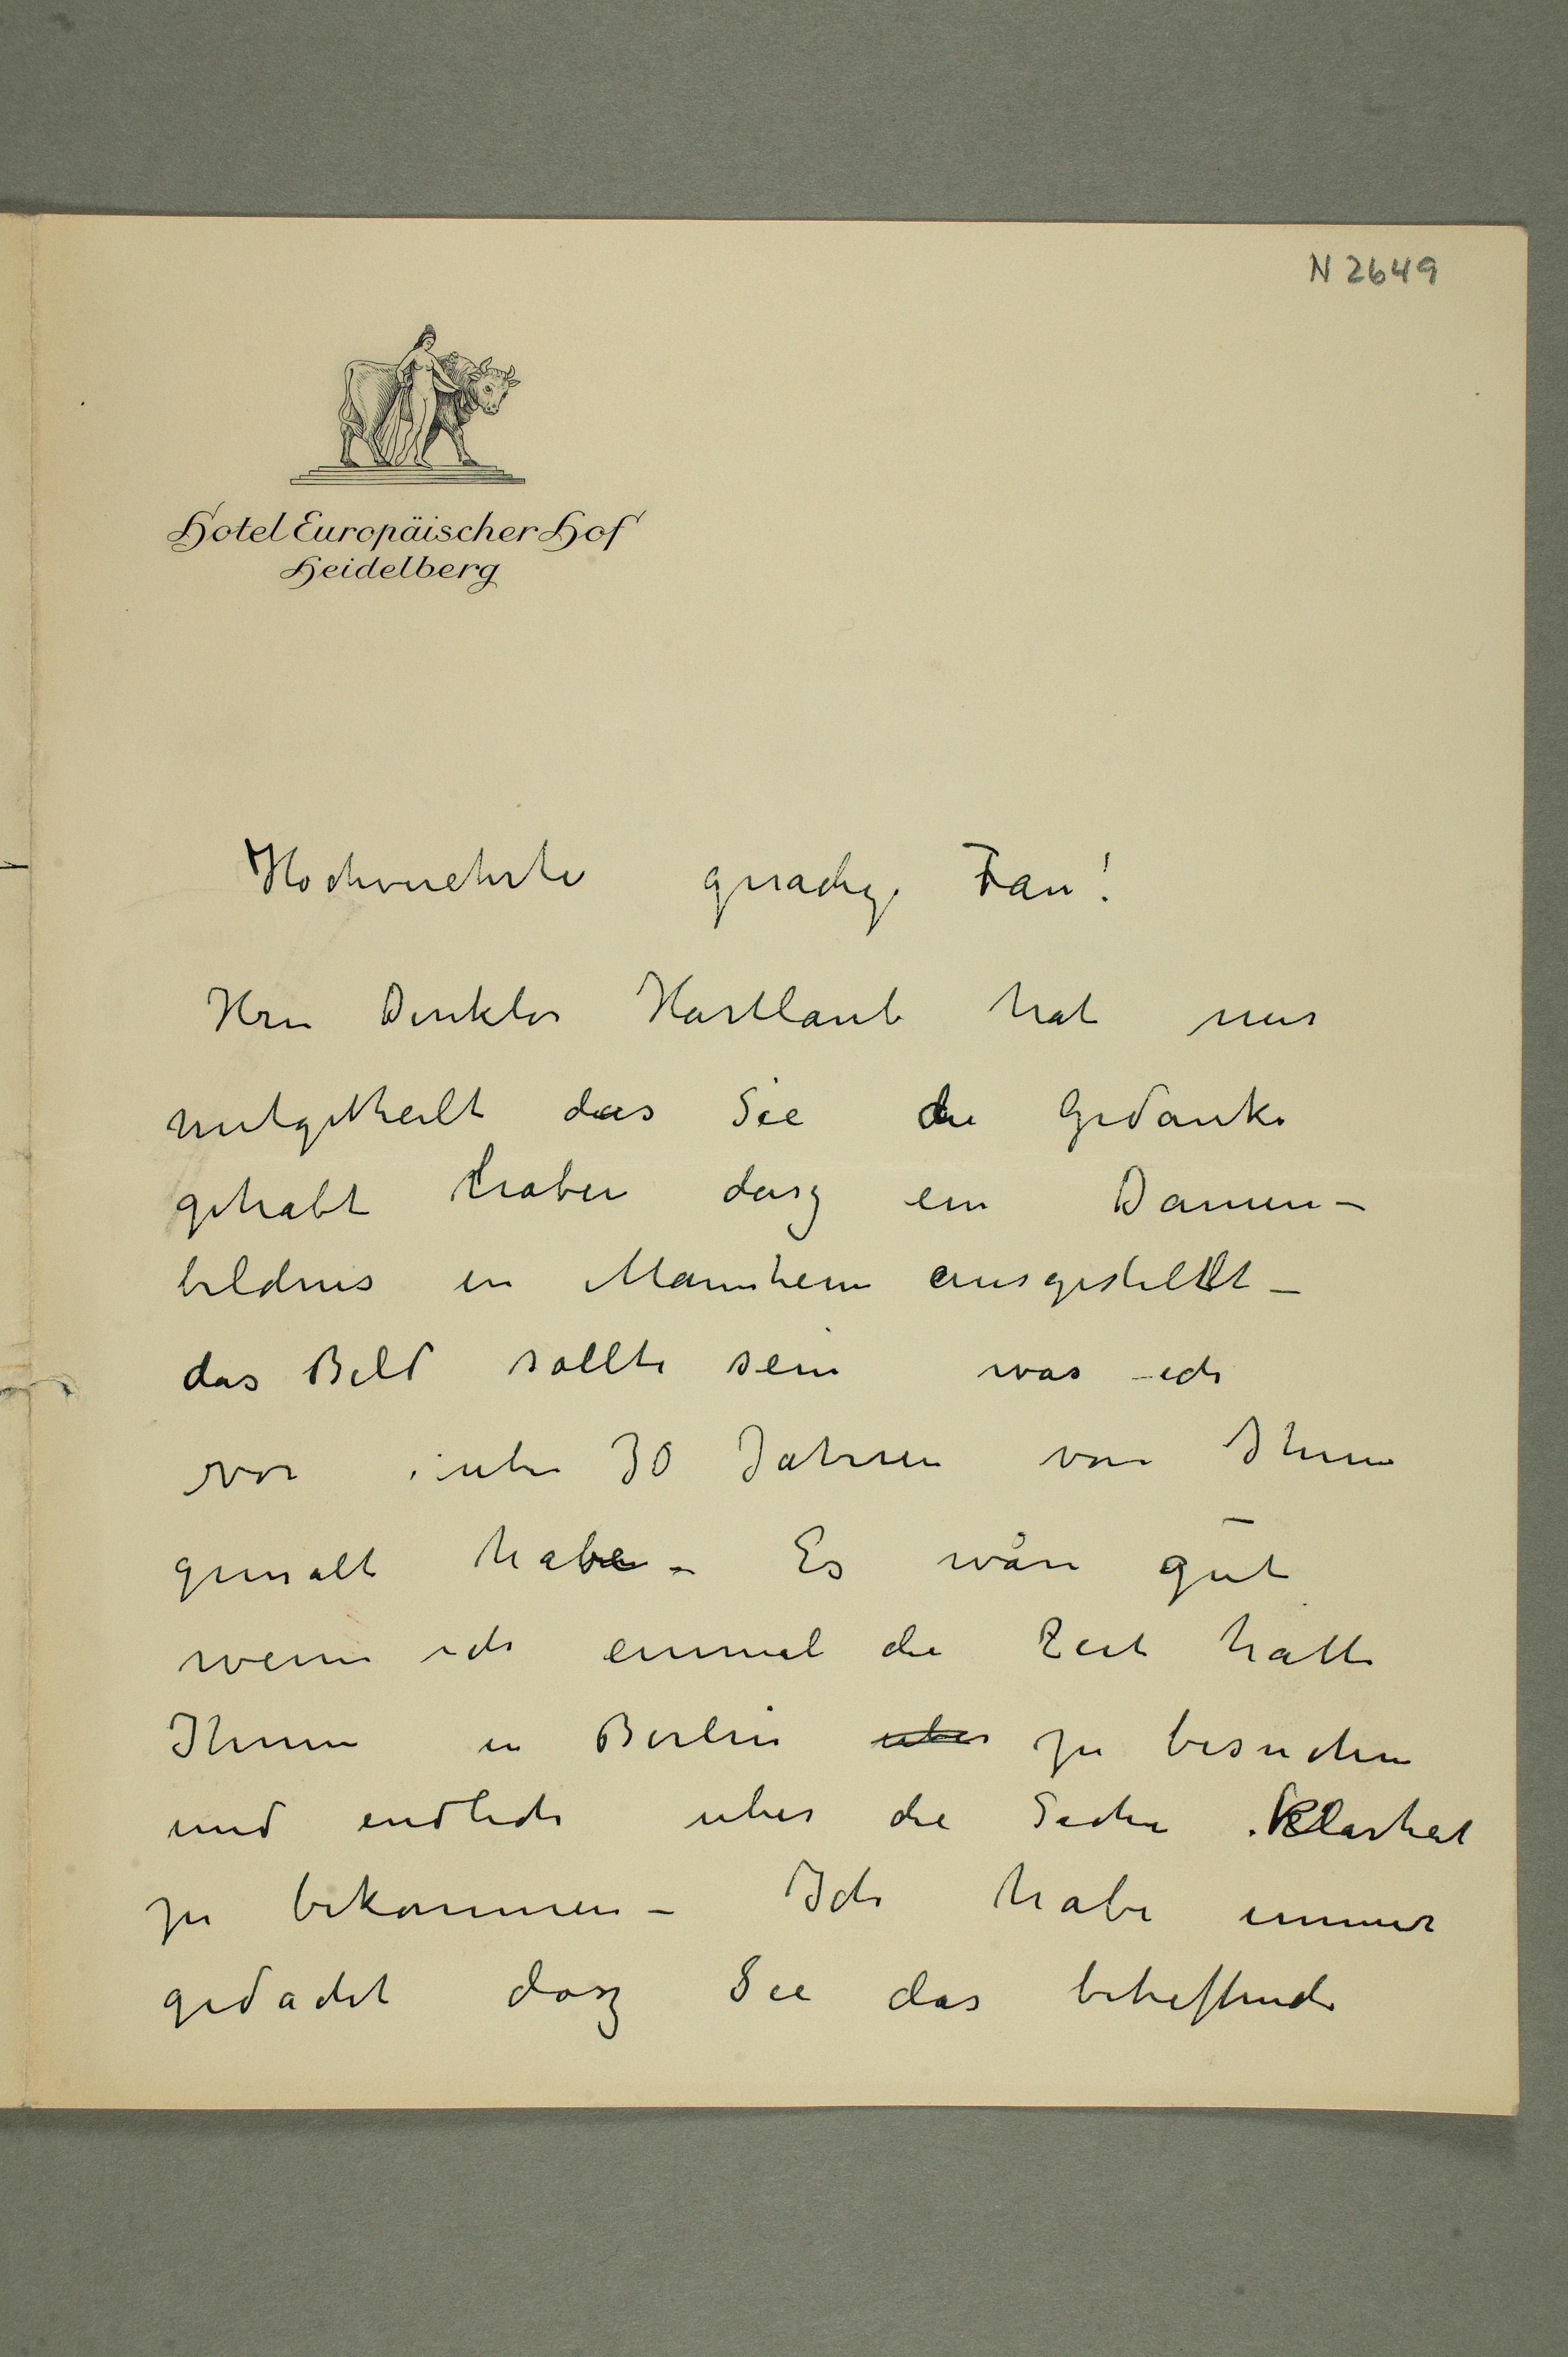 N 2649
Hotel Europäischer Hof
Heidelberg
Hochverehrte gnädige Frau!
Herr Direktor Hartlaub hat mir
mitgetheilt das Sie die Gedanke
gehabt haben dasz ein Damen–
bildnis in Mannheim ausgestellt –
das Bild sollte sein was ich
vor über 30 Jahren von Ihnen
gemalt habe – Es wäre gut
wenn ich einmal die Zeit hatte
Ihnen in Berlin über zu besuchen
und endlich uber die Sache Klarheit
zu bekommen – Ich habe immer
gedacht dasz Sie das betreffende